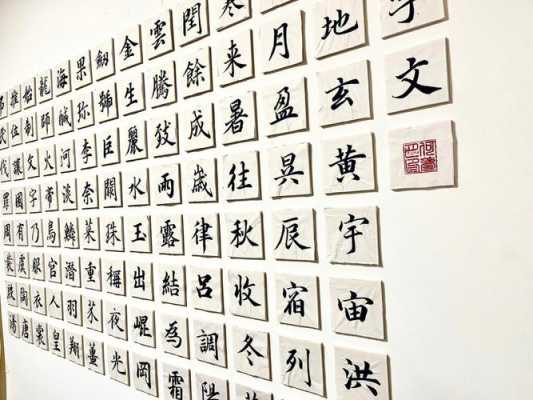 字文
地玄黄宇宙洪
月盈昃辰宿列
寒来暑往秋收冬
閏餘成歲律呂調陽
雲騰致雨露結為霜
金生麗水玉出崐岡
劒號巨闕珠稱夜光
果珎李奈菜重芥薑
海鹹河淡鱗潛羽翔
龍師火帝鳥官人皇
始制文字乃服衣裳
推位讓國有虞陶唐
伐罪周發殷湯